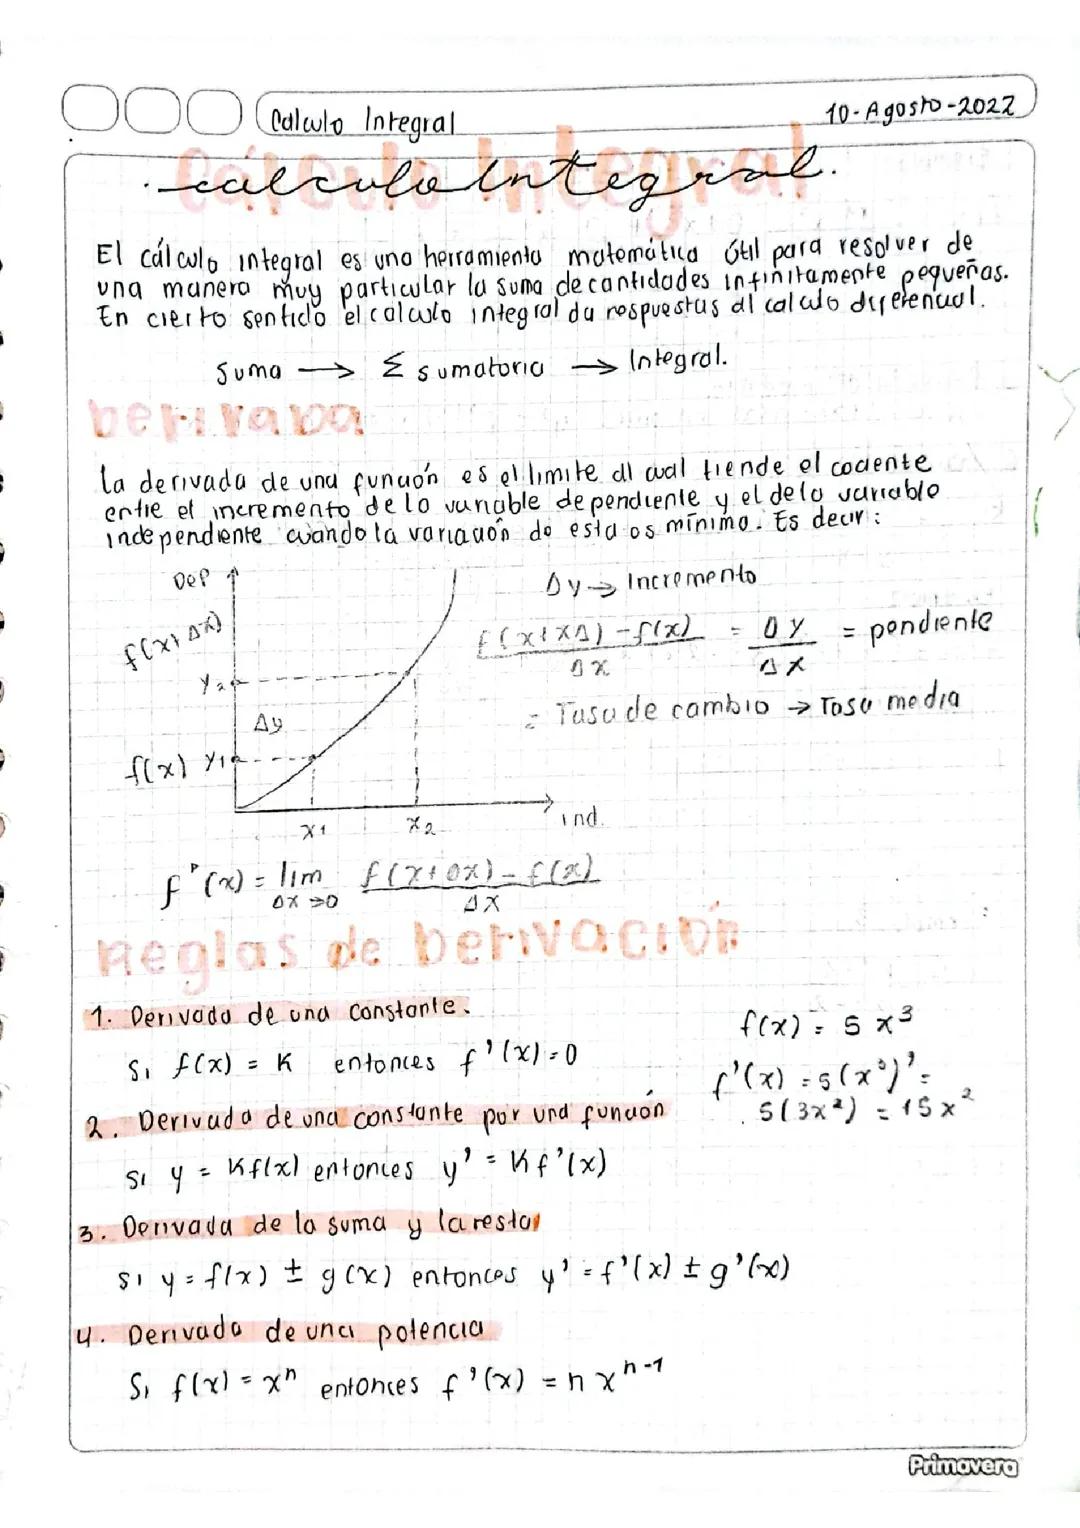 Calculo Integral
10-Agosto-2022
Cálculo Integral
calculo Integral.
El cálculo integral es una herramienta matemática útil para resolver de
una manera muy particular la suma de cantidades infinitamente pequeñas.
En cierto sentido el calculo integral da respuestas al calculo diferencial.
Suma → Σ sumatoria → Integral.
Derivada
La derivada de una función es el limite al cual tiende el cociente
entre el incremento de la variable dependiente y el de la variable
independiente cuando la variación de esta es mínima. Es decir:
Dep
Δy → Incremento
f(x+Δx)
f(x+xΔ)-f(x) / Δx = Δy / Δx = pendiente
y2
Δy
= Tasa de cambio → Tasa media
f(x) y1
x1 x2 ind.
f'(x) = lim Δx→0 f(x+Δx)-f(x) / Δx
Reglas de Derivación
1. Derivada de una constante.
f(x) = 5x³
Si f(x) = K entonces f'(x)=0
f'(x) = 5(x³)' =
5(3x²) = 15x²
2. Derivada de una constante por una función
Si y = Kf(x) entonces y' = Kf'(x)
3. Derivada de la suma y la resta
Si y = f(x) ± g(x) entonces y' = f'(x) ± g'(x)
4. Derivada de una potencia
Si f(x) = xⁿ entonces f'(x) = n xⁿ⁻¹
Primavera